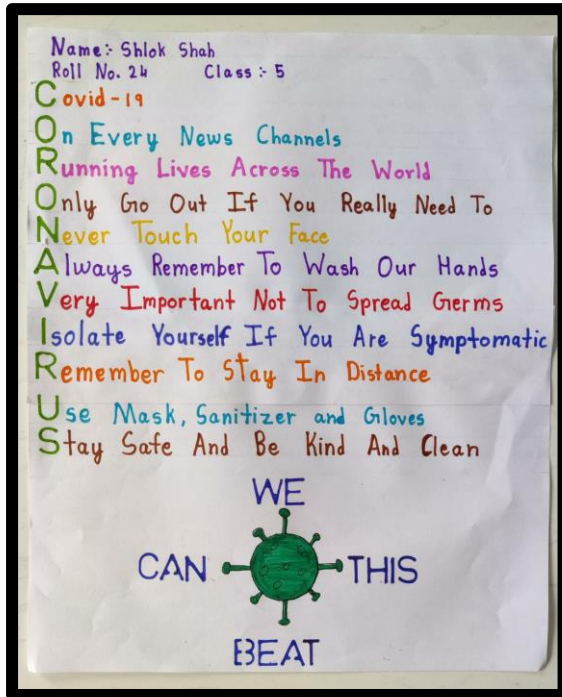 Name:- Shlok Shah
Roll No. 24 Class :- 5
Covid-19
On Every News Channels
Running Lives Across The World
Only Go Out If You Really Need To
Never Touch Your Face
Always Remember To Wash Our Hands
Very Important Not To Spread Germs
Isolate Yourself If You Are Symptomatic
Remember To Stay In Distance
Use Mask, Sanitizer and Gloves
Stay Safe And Be Kind And Clean
WE
CAN THIS
BEAT